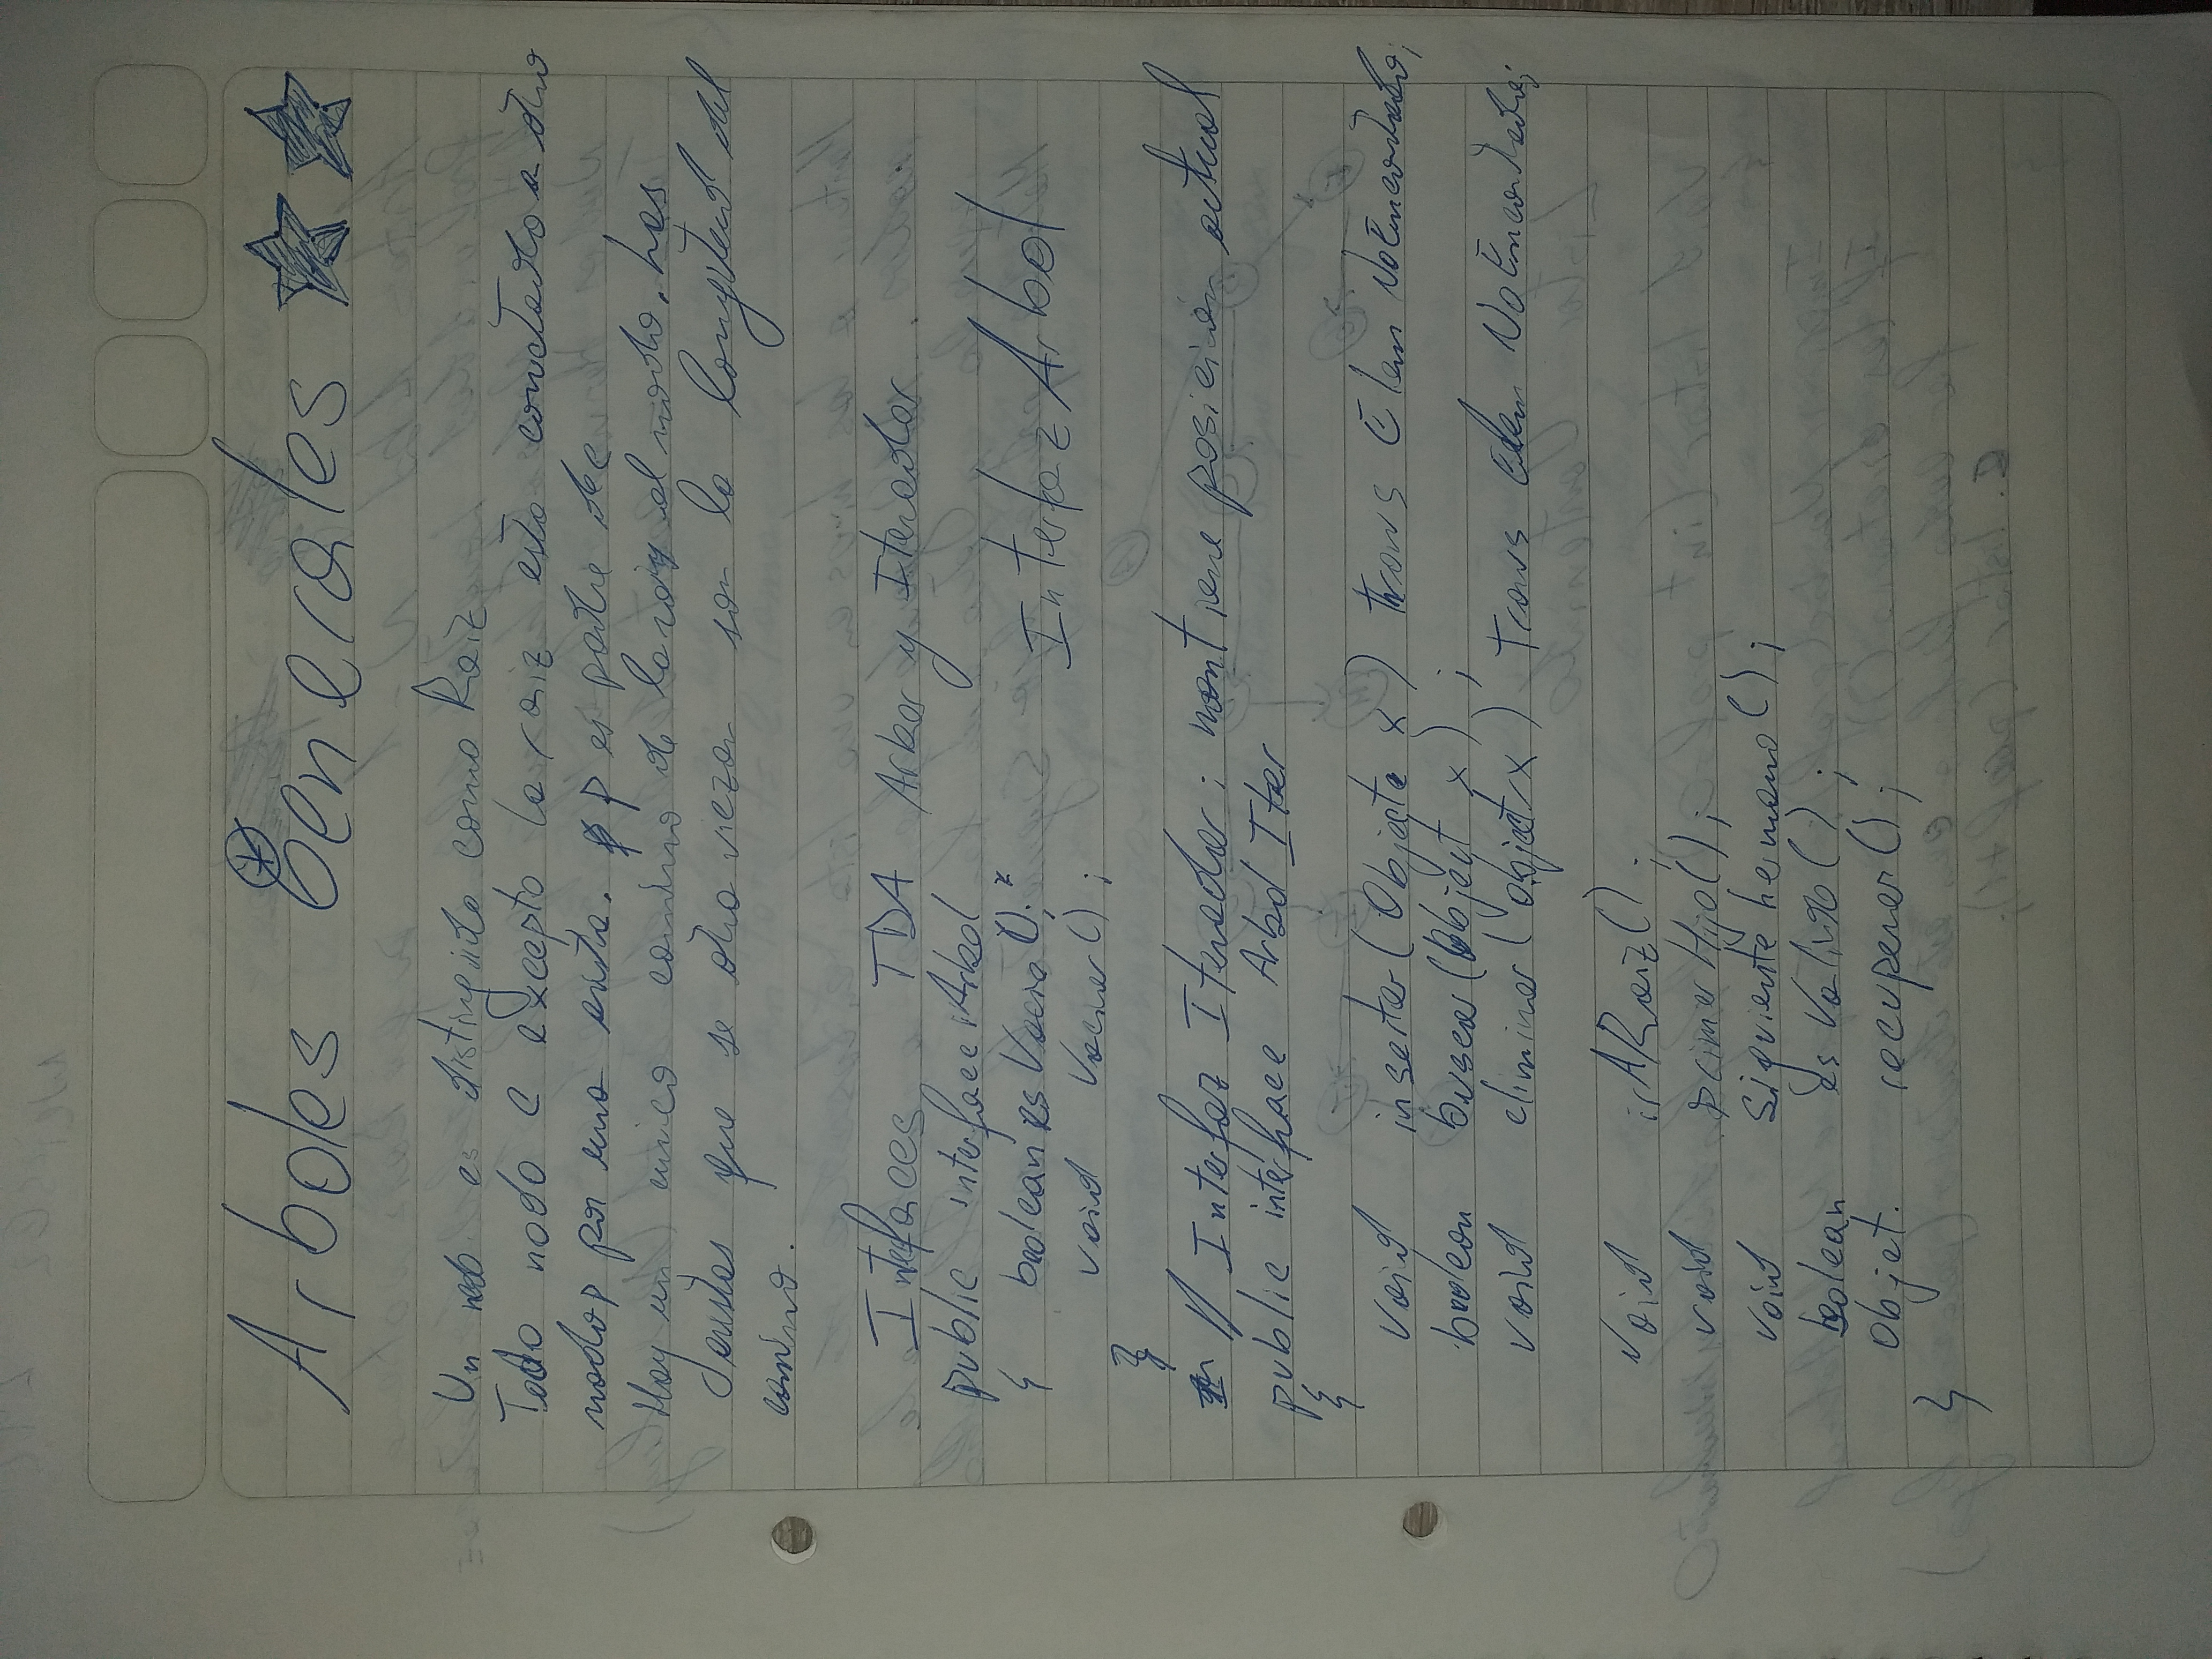 Arboles Generales
Un nodo es distinguido como Raiz
Todo nodo C excepto la raiz esta conectado a otro
nodo p por una arista. p es padre de c
Hay un unico camino de la raiz al nodo. Las
aristas que se atraviezan son la longitud del
camino.
Interfaces TDA Arbor y Iterador
public interface Arbol
{ boolean es Vacio();
Interfaz Arbol
void Vaciar();
}
// Interfaz Iterador: mantiene posición actual
public interface Arbol Iter
{
void insertar (Objecte x) trows Elem NoEncontrado;
boolean buscar (Object x);
void eliminar (object x) trows Elem NoEncontrado;
void irARaiz();
void primer Hijo();
void Siguiente hermano();
boolean es Valido();
Objet. recuperar();
}